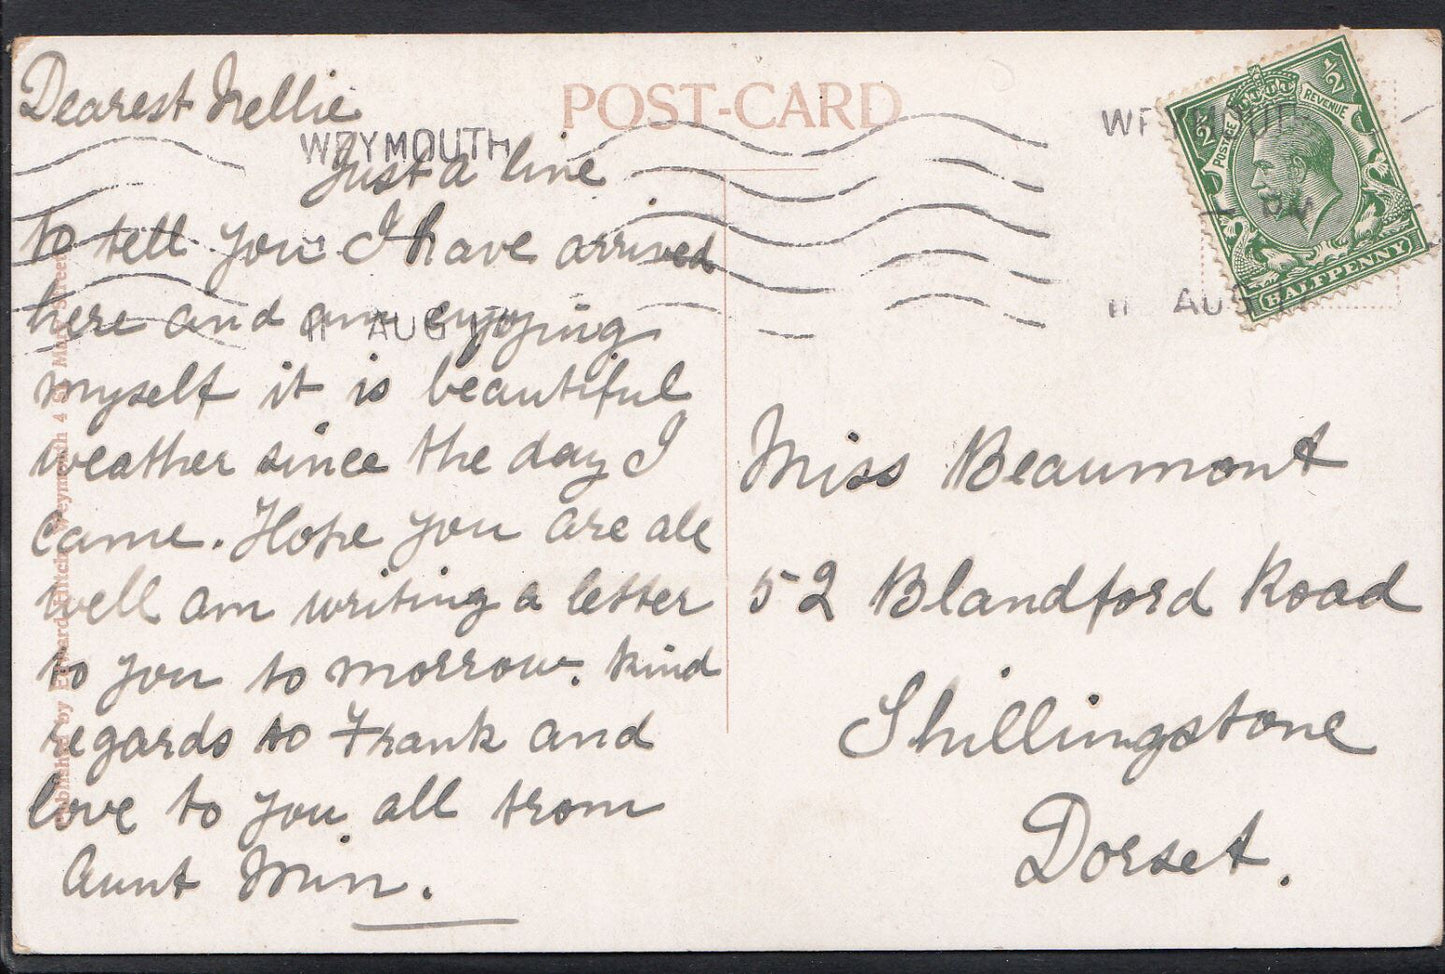 POST-CARD
Dearest Nellie
Just a line
to tell you I have arrived
here and am enjoying
myself it is beautiful
weather since the day I
came. Hope you are all
well am writing a letter
to you to morrow. Kind
regards to Frank and
love to you all from
Aunt Min.
Miss Beaumont
52 Blandford Road
Shillingstone
Dorset.
WEYMOUTH
11 AUG
WEYMOUTH
PM
11 AUG 17
POSTAGE REVENUE
½ ½
HALFPENNY
Published by Edward Hitch, Weymouth 4 St Mary Street